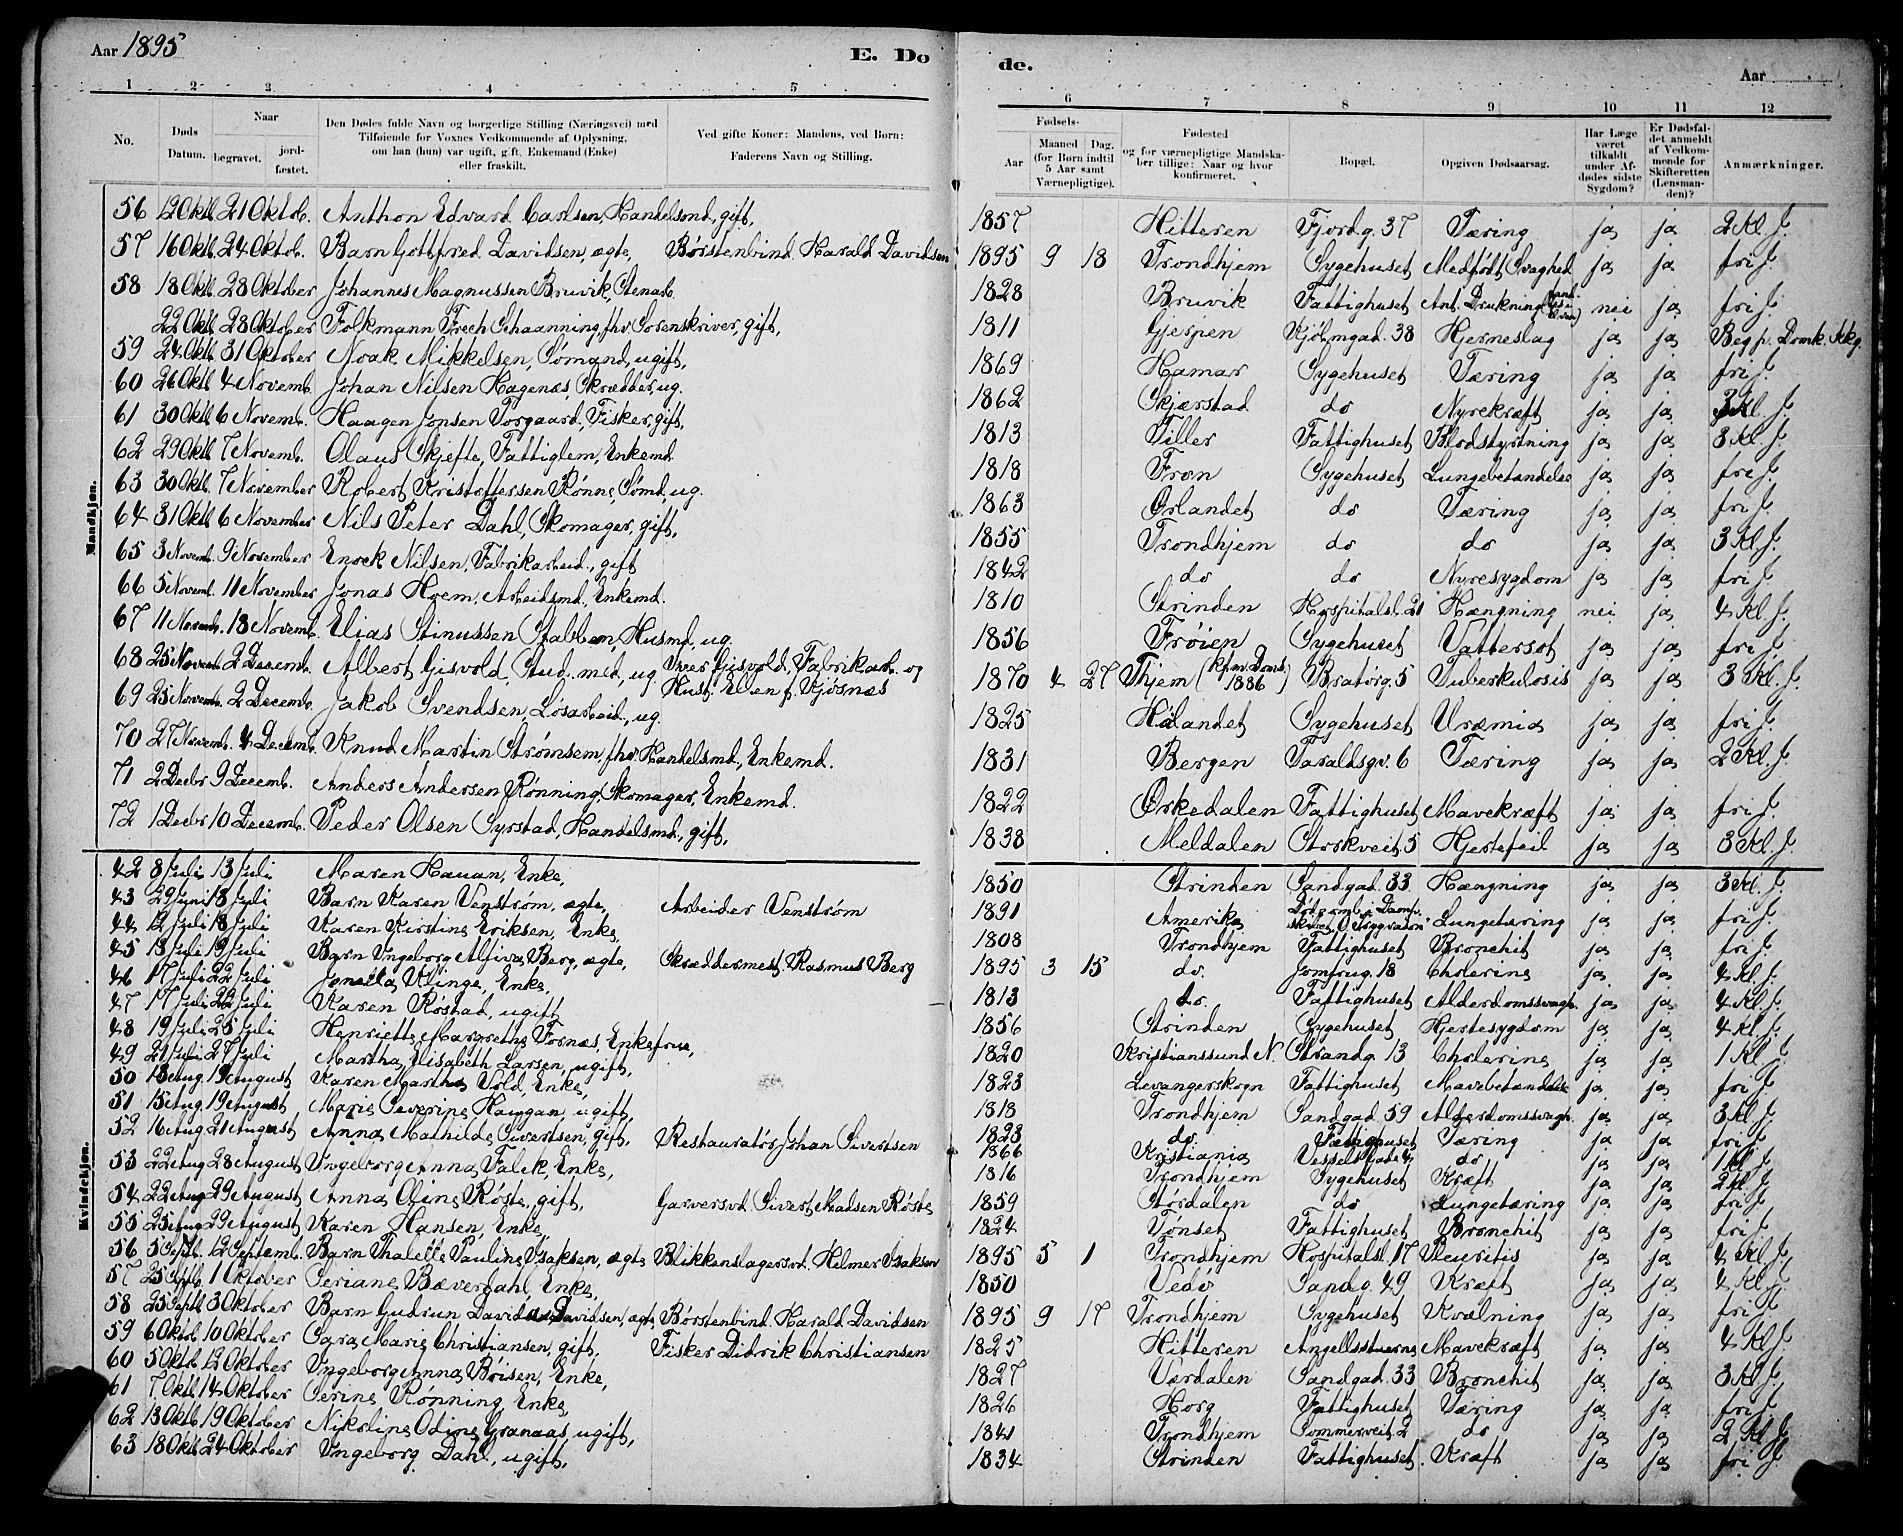 Aar 1895
E. Do
de.
Aar
1 2 3 4 5 6 7 8 9 10 11 12
No.
Døds Datum.
Naar
begravet.
jordfæstet.
Den Dødes fulde Navn og borgerlige Stilling (Næringsvei) med
Tilføiende for Voxnes Vedkommende af Oplysning,
om han (hun) var ugift, gift, Enkemand (Enke)
eller fraskilt.
Ved gifte Koner: Mandens, ved Børn:
Faderens Navn og Stilling.
Fødsels-
Aar
Maaned Dag.
(for Børn indtil
5 Aar samt
Værnepligtige).
Fødested
og for værnepligtige Mandska-
ber tillige: Naar og hvor
konfirmeret.
Bopæl.
Opgiven Dødsaarsag.
Har Læge
været
tilkaldt
under Af-
dødes sidste
Sygdom?
Er Dødsfal-
det anmeldt
af Vedkom-
mende for
Skifteretten
(Lensman-
den)?
Anmærkninger.
Mandkjøn.
56 12 Oktb 21 Oktob. Anthon Edvard Carlsen, Handelsmd, gift, 1857 Hitteren Fjordg. 37 Tæring ja ja 2 Kl. J.
57 16 Oktb 24 Oktob. Barn Gottfred Davidsen, ægte, Børstenbind. Harald Davidsen 1895 9 18 Trondhjem Sygehuset Medfødt Svaghed ja ja fri J.
58 18 Oktb. 28 Oktober Johannes Magnussen Bruvik, Stenarb. 1828 Bruvik Fattighuset Ant. Drukning nei ja fri J.
22 Oktb. 28 Oktober Folkmann Frech Schaanning, fhv. Sorenskriver, gift, 1811 Gjerpen Kjøbmgad. 38 Hjerneslag ja ja Beg p. Domk.
59 24 Oktb 31 Oktober Noak Mikkelsen, Sømand, ugift, 1869 Hamar Sygehuset Tæring ja ja fri J.
60 26 Oktb 4 Novemb. Johan Nilsen Hagenæs, Skrædder, ug. 1862 Skjærstad do Nyrekræft ja ja 3 Kl. J.
61 30 Oktb 6 Novemb. Haagen Jonsen Torgaard, Fisker, gift, 1813 Tiller Fattighuset Blodstyrtning ja ja 3 Kl. J.
62 29 Oktb 7 Novemb. Olaus Skjefte, Fattiglem, Enkemd. 1818 Fron Sygehuset Lungebetændelse ja ja fri J.
63 30 Oktb. 7 November Robert Kristoffersen Rønne, Sømd, ug. 1863 Ørlandet do Tæring ja ja fri J.
64 31 Oktb 6 November Nils Peter Dahl, Skomager, gift, 1855 Trondhjem do do ja ja 3 Kl J.
65 3 Novemb. 9 November Enock Nilsen, Fabrikarbeid., gift 1842 do do Nyresygdom ja ja fri J.
66 5 Novemb. 11 November Jonas Hoem, Arbeidsmd, Enkemd. 1810 Strinden Hospitalsl. 21 Hængning nei ja 4 Kl. J.
67 11 Novemb. 18 Novemb. Elias Stinussen Stabben, Husmd, ug. 1856 Frøien Sygehuset Vattersot ja ja fri J.
68 25 Novem 2 Decemb. Albert Gisvold, Stud. med., ug. Iver Gisvold, Fabrikarb. og Hust. Elen f. Kjøsnæs 1870 4 27 Thjem (kfm. Doms 1886) Bratørg. 5 Tuberkulosis ja ja 3 Kl. J.
69 25 Novemb. 2 Decemb. Jakob Svendsen, Løsarbeid., ug. 1825 Hølandet Sygehuset Uræmia ja ja fri J.
70 27 Novemb. 4 Decemb. Knud Martin Strømsem, fhv. Handelsmd., Enkemd. 1831 Bergen Taraldsgv. 6 Tæring ja ja 2 Kl. J.
71 2 Decbr 9 Decemb. Anders Andersen Rønning, Skomager, Enkemd. 1822 Orkedalen Fattighuset Mavekræft ja ja fri J.
72 1 Decbr 10 Decemb. Peder Olsen Syrstad, Handelsmd., gift, 1838 Meldalen Storkveit 5 Hjertefeil ja ja 3 Kl. J.
Kvindekjøn.
42 8 Juli 13 Juli Maren Hauan, Enke, 1850 Strinden Sandgad. 33 Hængning ja ja 3 Kl. J.
43 29 Juni 13 Juli Barn Karen Venstrøm, ægte, Arbeider Venstrøm 1891 Amerika Lungetæring ja ja fri J.
44 12 Juli 18 Juli Karen Kirstine Eriksen, Enke, 1808 Trondhjem Fattighuset Bronchit ja ja fri J.
45 13 Juli 19 Juli Barn Ingeborg Alfive Berg, ægte, Skræddermest. Rasmus Berg 1895 3 15 do. Jomfrug. 18 Cholerine ja ja 4 Kl J.
46 17 Juli 22 Juli Jonetta Klinge, Enke, 1813 do. Fattighuset Alderdomssvagh. ja ja 4 Kl J.
47 17 Juli 22 Juli Karen Røstad, ugift 1856 Strinden Sygehuset Hjertesygdom ja ja 4 Kl. J.
48 19 Juli 25 Juli Henriette Margrethe Fornæs, Enkefrue, 1820 Kristianssund N. Strandg. 13 Cholerine ja ja 1 Kl J.
49 21 Juli 27 Juli Martha Elisabeth Larsen, ugift, 1823 Levangerskogn Fattighuset Mavebetændelse ja ja fri J
50 13 Aug. 19 August Karen Agartha Vold, Enke, 1818 Trondhjem Sandgad 59 Alderdomssvagh. ja ja 3 Kl J.
51 15 Aug. 19 August, Marie Severine Haugan, ugift, 1823 do. Fattighuset Tæring ja ja fri J.
52 16 Aug. 21 August, Anna Mathilde Sivertsen, gift, Restauratør Johan Sivertsen 1866 Kristiania do ja ja 1 Kl J.
53 22 Aug. 28 August Ingeborg Anna Falck, Enke, 1816 Trondhjem Sygehuset Kræft ja ja 2 Kl. J.
54 22 Aug 29 August, Anna Oline Røste, gift, Garversvd Sivert Madsen Røste 1859 Størdalen do Lungetæring ja ja fri J.
55 25 Aug 29 August, Karen Hansen, Enke, 1824 Tønset Fattighuset Bronchit ja ja fri J.
56 5 Septb. 12 Septemb. Barn Thalette Pauline Isaksen, ægte Blikkenslagersvd. Helmer Isaksen 1895 5 1 Trondhjem Hospitalsl. 17 Pleuritis ja ja 4 Kl. J.
57 25 Septb. 1 Oktober Seriane Bæverdahl, Enke, 1850 Vedø Sandg. 49 Kræft ja ja 4 Kl J
58 25 Septb 3 Oktober Barn Gudrun Davida Davidsen, ægte, Børstenbind. Harald Davidsen 1895 9 17 Trondhjem Sygehuset Kvælning ja ja fri J.
59 6 Oktob 10 Oktober Sara Marie Christiansen, gift, Fisker Didrik Christiansen 1825 Hitteren Angellsstuerne Mavekræft ja ja 4 Kl J.
60 5 Oktb. 12 Oktober Ingeborg Anna Bøisen, Enke, 1827 Værdalen Sandgad. 33 Bronchit ja ja 3 Kl J.
61 7 Oktb 14 Oktober Serine Rønning, Enke, 1826 Horg Fattighuset Tæring ja ja fri J.
62 13 Oktb 19 Oktober Nikoline Odine Granaas, ugift, 1841 Trondhjem Sommerveit. 2 do ja ja 2 Kl J.
63 18 Oktb 24 Oktober Ingeborg Dahl, ugift, 1834 Strinden Fattighuset. Kræft ja ja fri J.